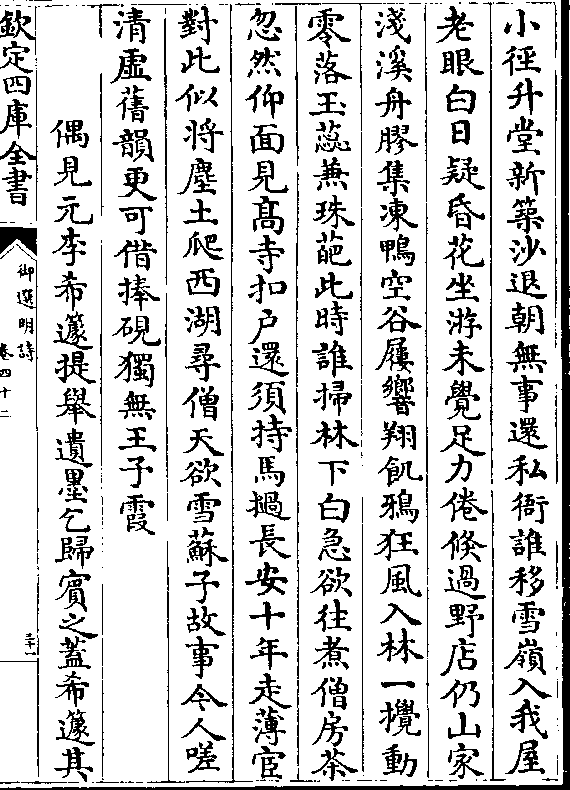 小徑升堂新築沙退朝無事還私衙誰移雪嶺入我屋
老眼白日疑昏花坐游未覺足力倦倐過野店仍山家
淺溪舟膠集凍鴨空谷屨響翔飢鴉狂風入林一攪動
零落玉蕊兼珠葩此時誰掃林下白急欲往煮僧房茶
忽然仰面見髙寺扣户還須持馬撾長安十年走薄宦
對此似將塵土爬西湖尋僧天欲雪蘇子故事令人嗟
清虛舊韻更可借捧硯獨無王子霞
偶見元李希籧提舉遺墨乞歸賓之蓋希籧其
欽定四庫全書
御選明詩
卷四十二
三十